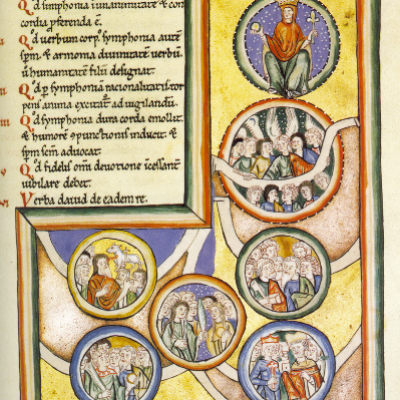 Qd simphonia ī unanimitate & con
cordia pferenda ē.
Qd verbum corp' symphonia autē
spm & armonia divinitatē verbū
ū humanitatē filii designat.
Qd p symphoniā racionalitatis tor
pens anima excitat' ad vigilandū.
Qd symphonia dura corda emollit.
& humorē cpunctionis inducit. &
spm scm advocat.
Qd fidelis om̄i devotione icessant'
iubilare debet.
Verba david de eadem re.